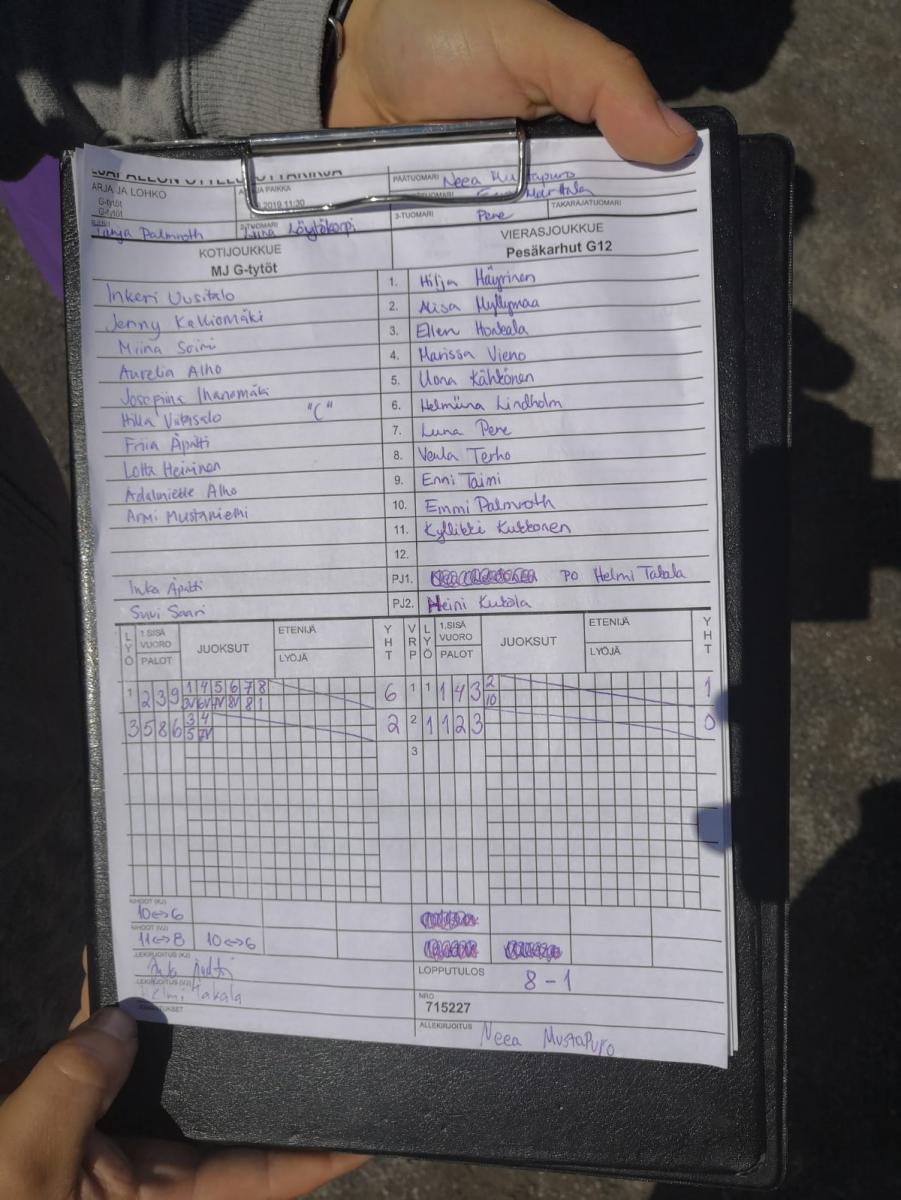 ARJA JA LOHKO
PAIKKA
PÄÄTUOMARI Neea
G-tytöt
G-tytöt
2019 11:30
3-TUOMARI Pene
TAKARAJATUOMARI
Tanja Palmroth
2-TUOMARI Luna Löytökorpi
KOTIJOUKKUE
MJ G-tytöt
VIERASJOUKKUE
Pesäkarhut G12
Inkeri Uusitalo 1. Hilja Häyrinen
Jenny Kalliomäki 2. Aisa Myllymaa
Miina Soini 3. Ellen Honkala
Aurelia Alho 4. Marissa Vieno
Josefiina Ihanamäki 5. Uona Kähkönen
Hilla Viitasalo "C" 6. Helmiina Lindholm
Friia Äpätti 7. Luna Pene
Lotta Heininen 8. Venla Terho
Adalmiette Alho 9. Enni Taimi
Armi Mustaniemi 10. Emmi Palmroth
11. Kyllikki Kukkonen
12.
Inka Äpätti PJ1. PO Helmi Takala
Suvi Saari PJ2. Heini Kukola
LYÖ 1.SISÄ VUORO PALOT JUOKSUT ETENIJÄ LYÖJÄ YHT VRP LYÖ 1.SISÄ VUORO PALOT JUOKSUT ETENIJÄ LYÖJÄ YHT
1 2 3 9 1 4 5 6 7 8 6 1 1 1 4 3 2 1
3V 6V 7V 8V 8 1 10
3 5 8 6 3 4 2 2 1 1 2 3 0
5 7V
3
10<->6
11<->8 10<->6
LOPPUTULOS 8-1
Helmi Takala
NRO
715227
ALLEKIRJOITUS Neea Mustapuro